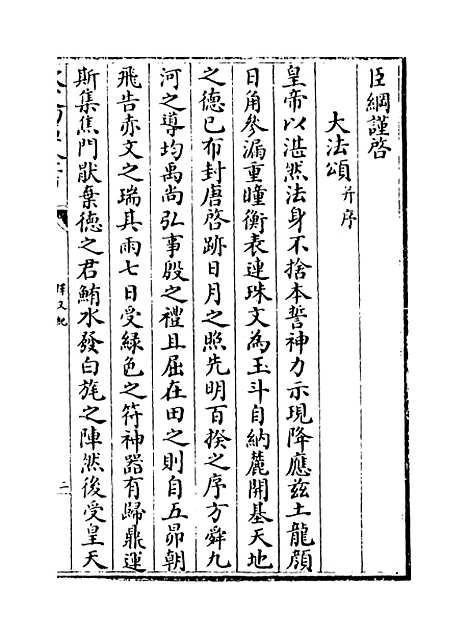 臣綱謹啓
大法頌并序
皇帝以湛然法身不捨本誓神力示現降應茲土龍顏
日角參漏重瞳衡表連珠文為玉斗自納麓開基天地
之德已布封唐啓跡日月之照先明百揆之序方舜九
河之導均禹尚弘事殷之禮且屈在田之則自五昴朝
飛告赤文之瑞具雨七日受綠色之符神器有歸鼎運
斯集焦門猒棄德之君鮪水發白旄之陣然後受皇天
釋文紀
二